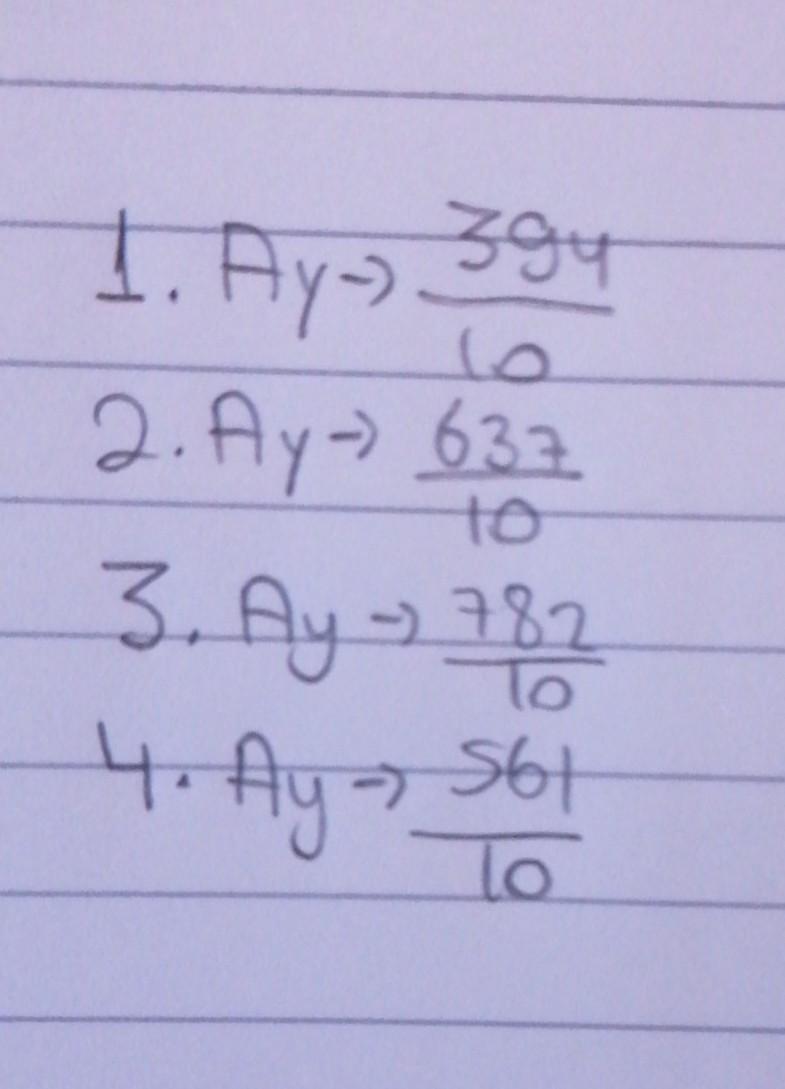 1. Ay → 394/10
2. Ay → 637/10
3. Ay → 782/10
4. Ay → 561/10